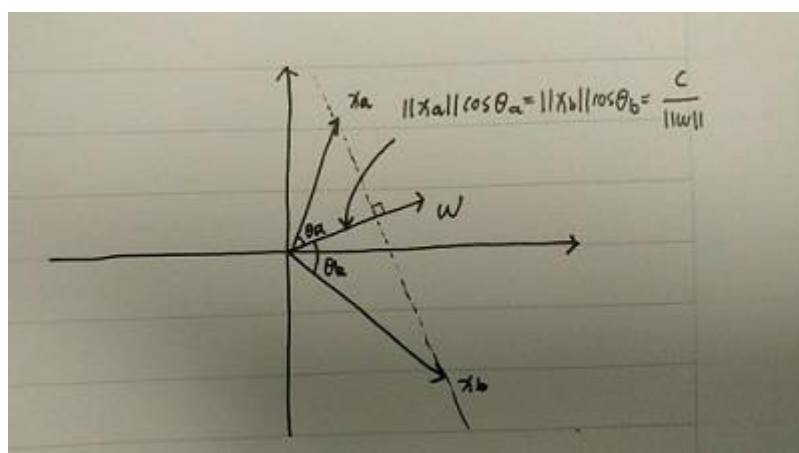 xa
||xa||cosθa=||xb||cosθb= c/||w||
θa
W
θb
xb